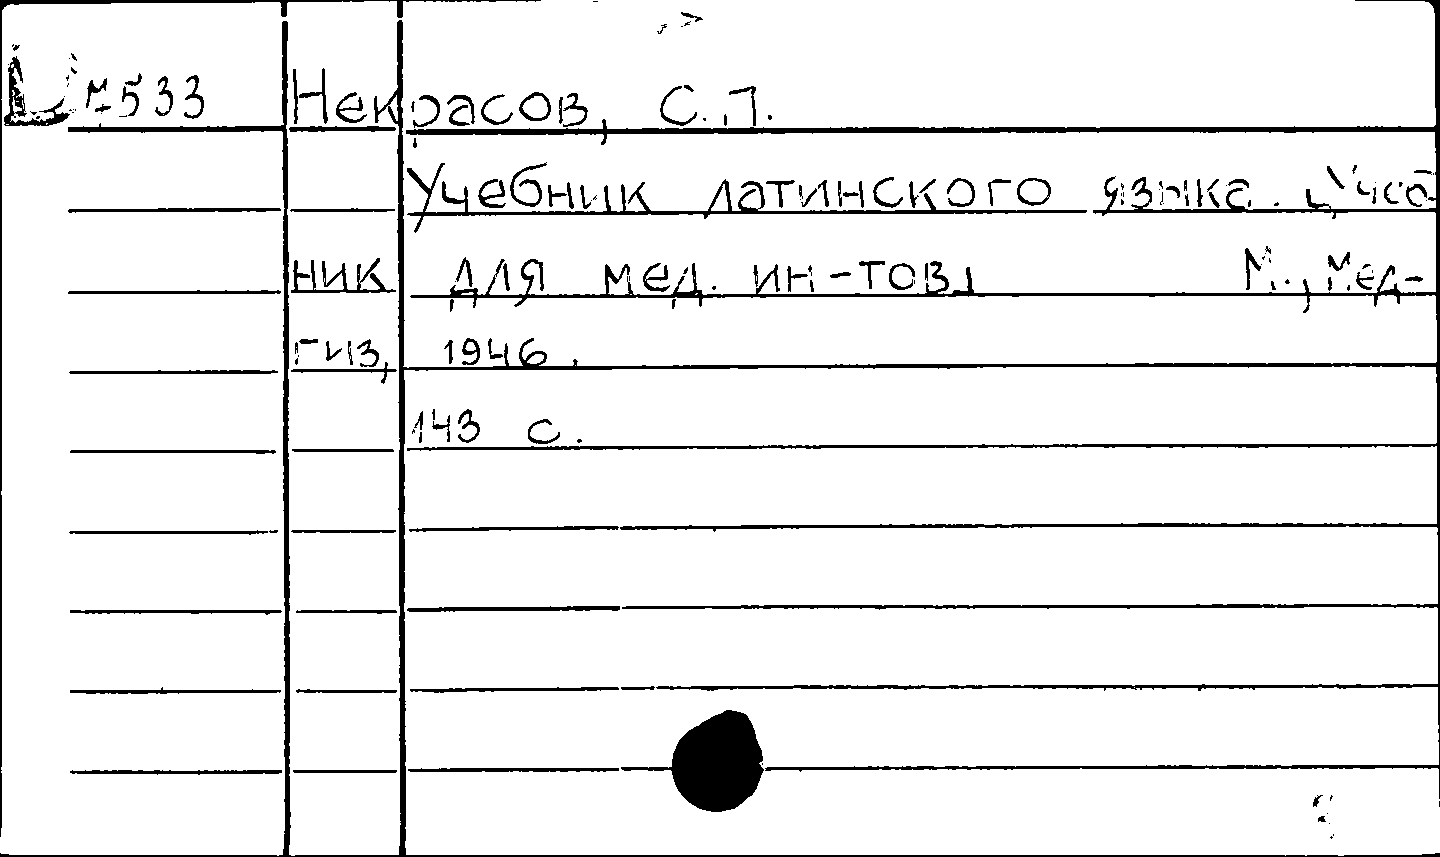 533 Некрасов, С.П.
Учебник латинского языка. [Учеб-
ник для мед. ин-тов] М., Мед-
гиз, 1946.
143 с.